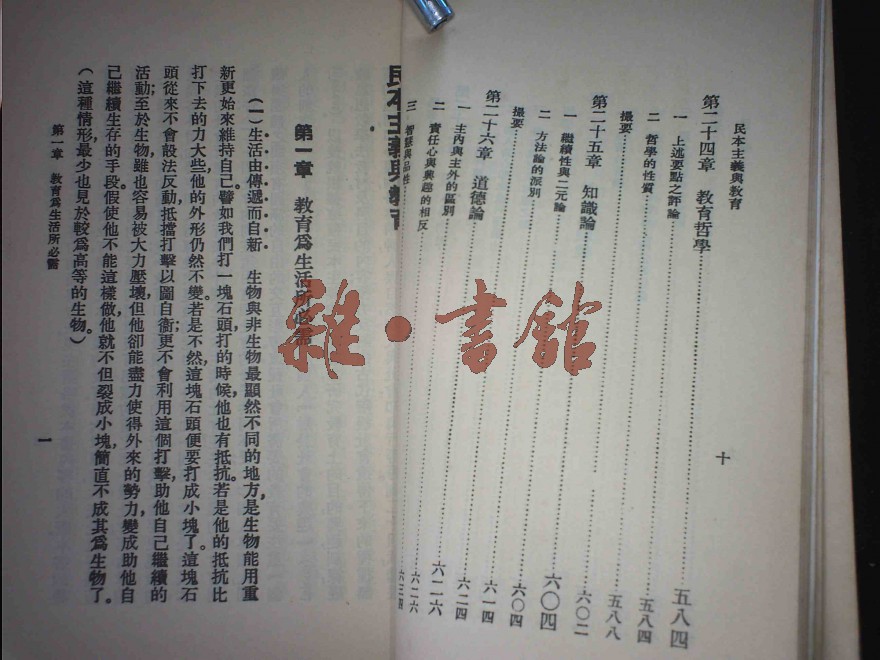 民本主義與教育
第二十四章 教育哲學 五八四
一 上述要點之評論 五八四
二 哲學的性質 五八八
撮要 六〇二
第二十五章 知識論 六〇四
一 繼續性與二元論 六〇四
二 方法論的派別
撮要
第二十六章 道德論 六一四
一 主內與主外的區別
二 責任心與興趣的相反
三 智識與品性
十
民本主義與教育
第一章 教育爲生活所必需
(一)生活由傳遞而自新 生物與非生物最顯然不同的地方,是生物能用重
新更始來維持自己。譬如我們打一塊石頭,打的時候,他也有抵抗。若是他的抵抗比
打下去的力大些,他的外形仍然不變;若是不然,這塊石頭便要打成小塊了。這塊石
頭從來不會設法反動,抵擋打擊,以圖自衞;更不會利用這個打擊,助他自己繼續的
活動;至於生物,雖也容易被大力壓壞,但他卻能盡力使得外來的勢力,變成助他自
己繼續生存的手段。假使他不能這樣做,他就不但裂成小塊,簡直不成其爲生物了。
(這種情形,最少也見於較爲高等的生物。)
第一章 教育爲生活所必需
一
雜·書館